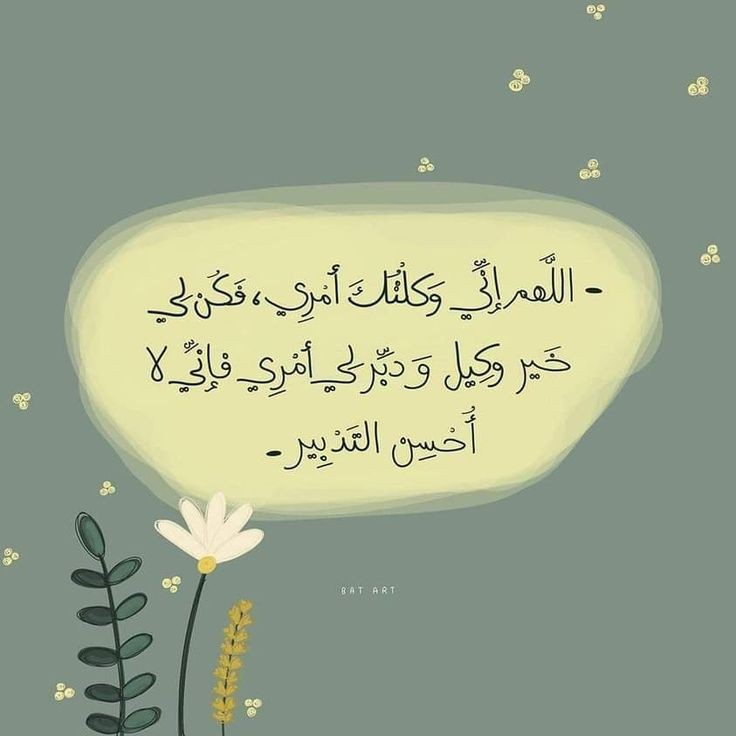 - اللَّهم إنِّي وَكلْتُكَ أمْرِي، فَكُن لِي
خَير وكِيل وَ دبِّر لِي أمْرِي فإنِّي لا
أُحْسِن التَدْبِير -
BAT ART